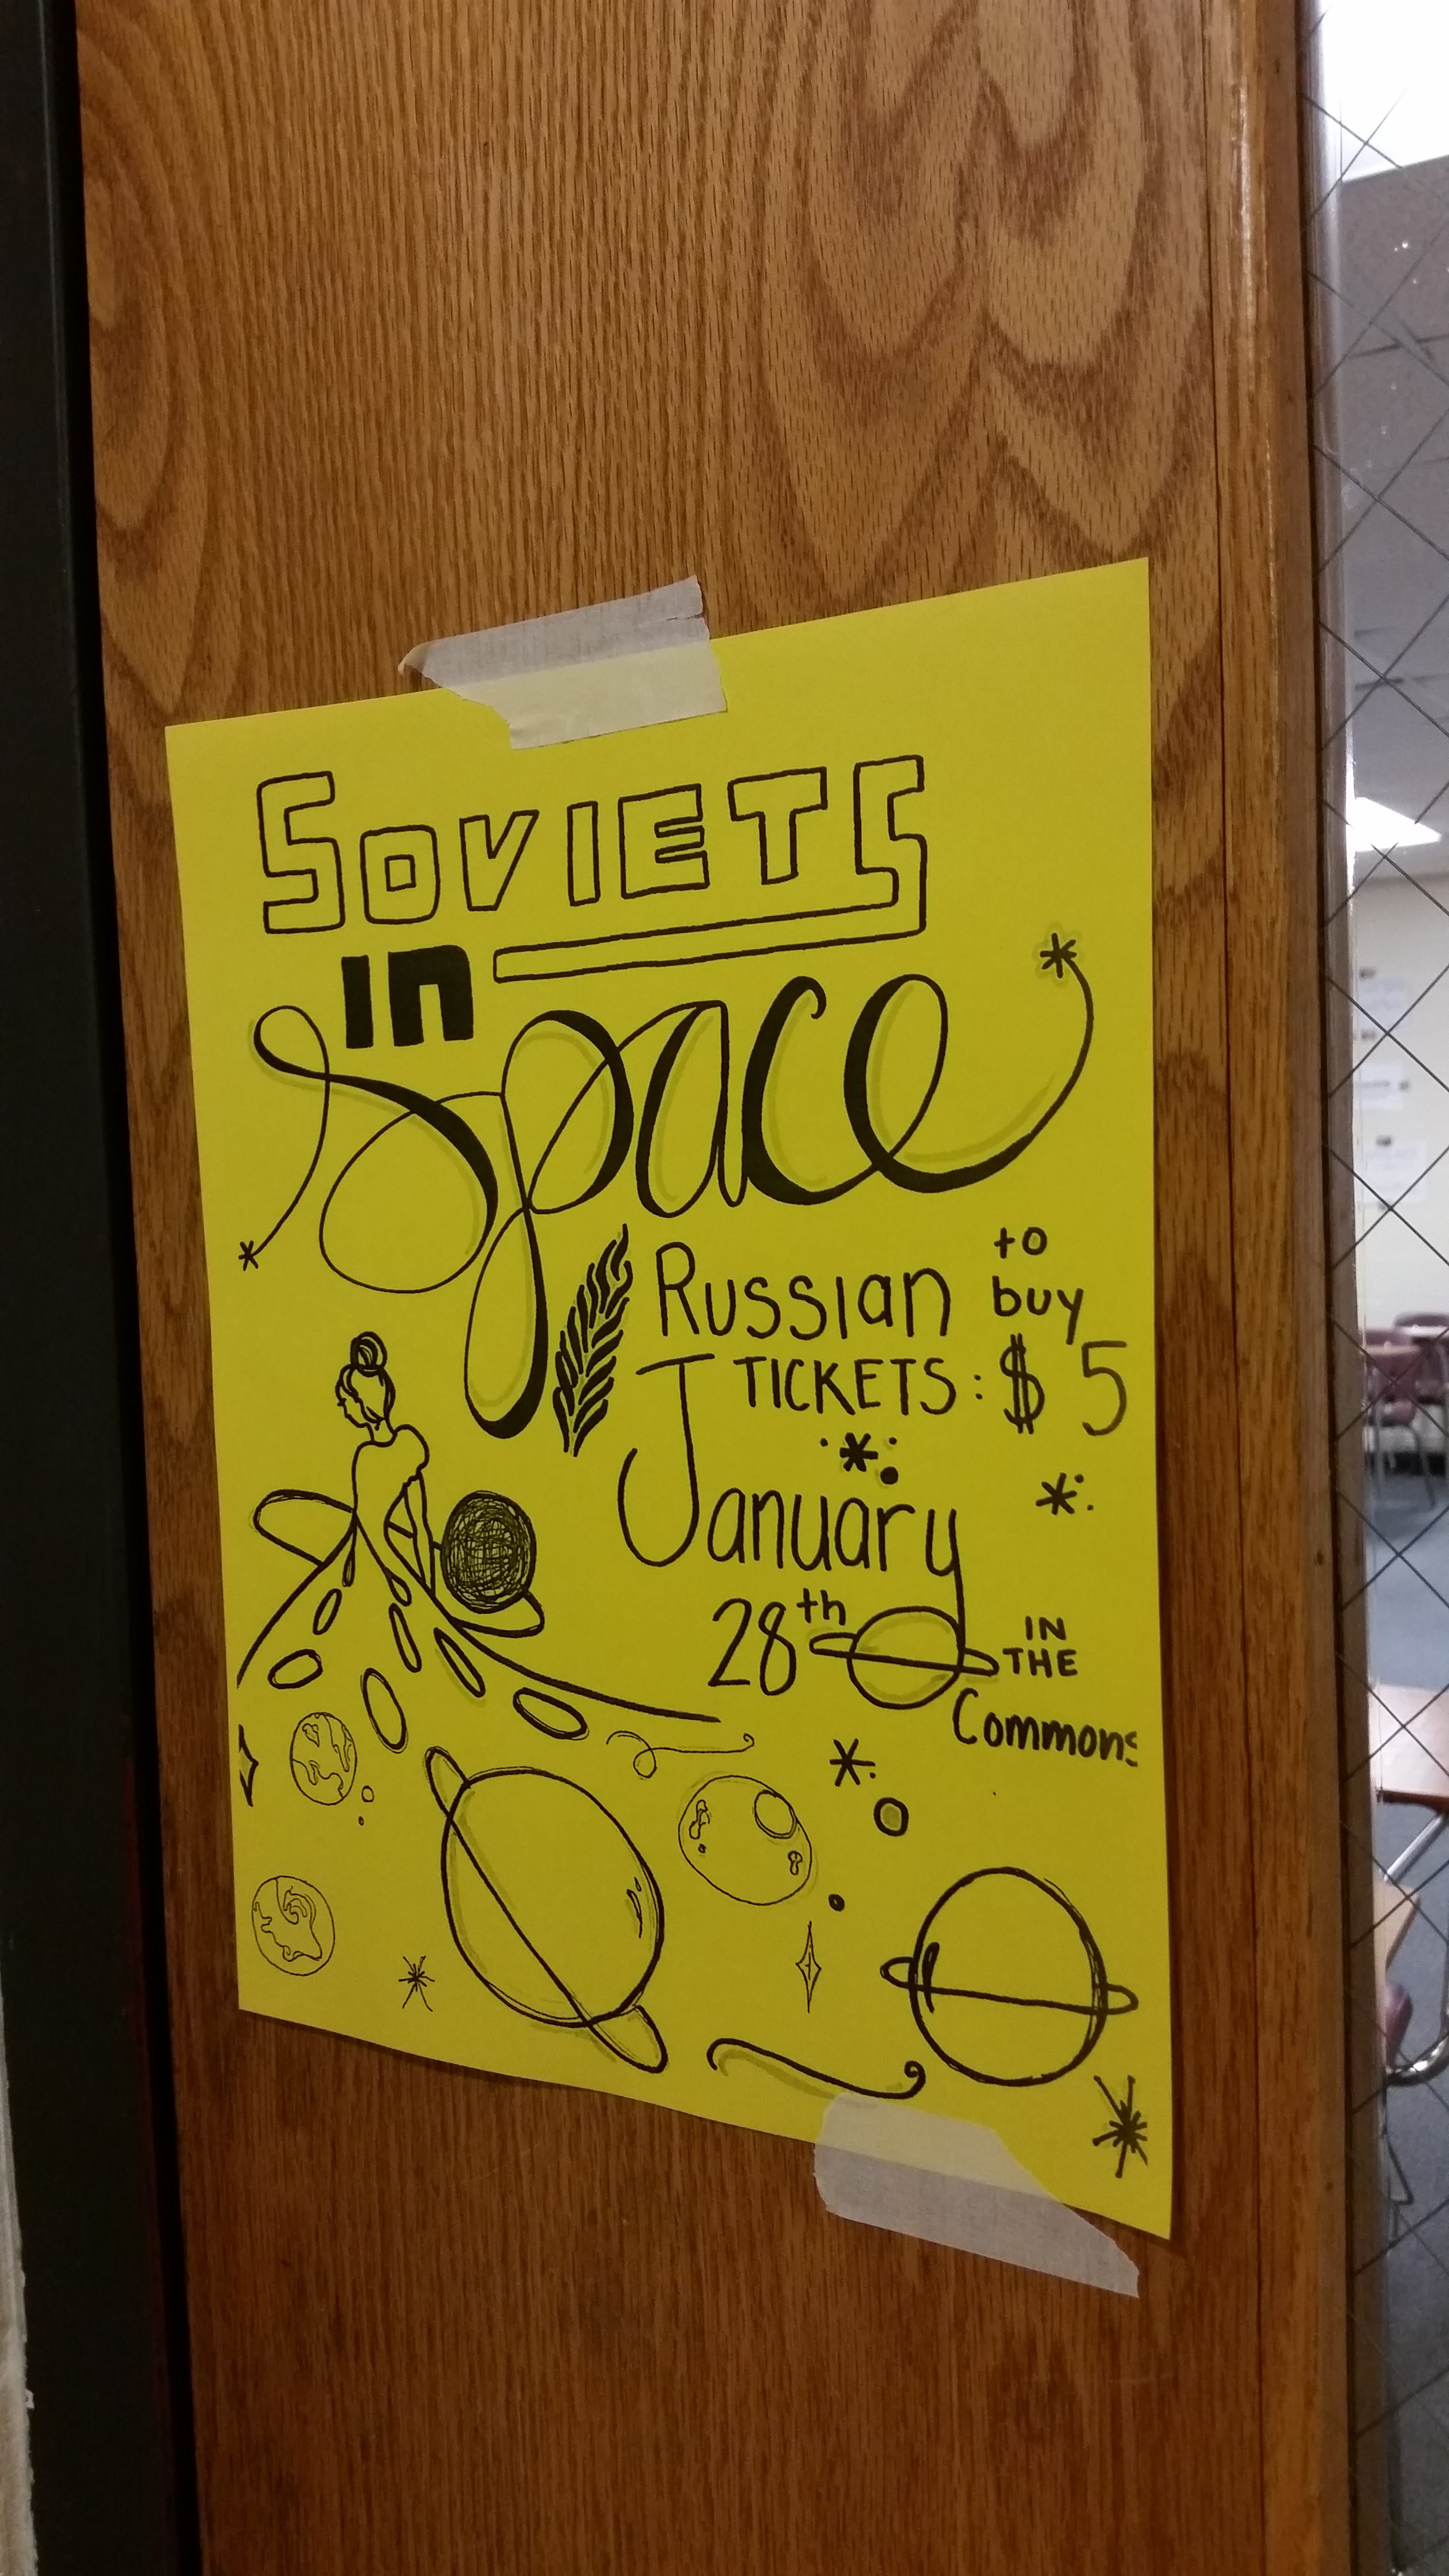 SOVIETS
IN
Space
Russian to buy
TICKETS: $5
January
28th IN THE
Commons